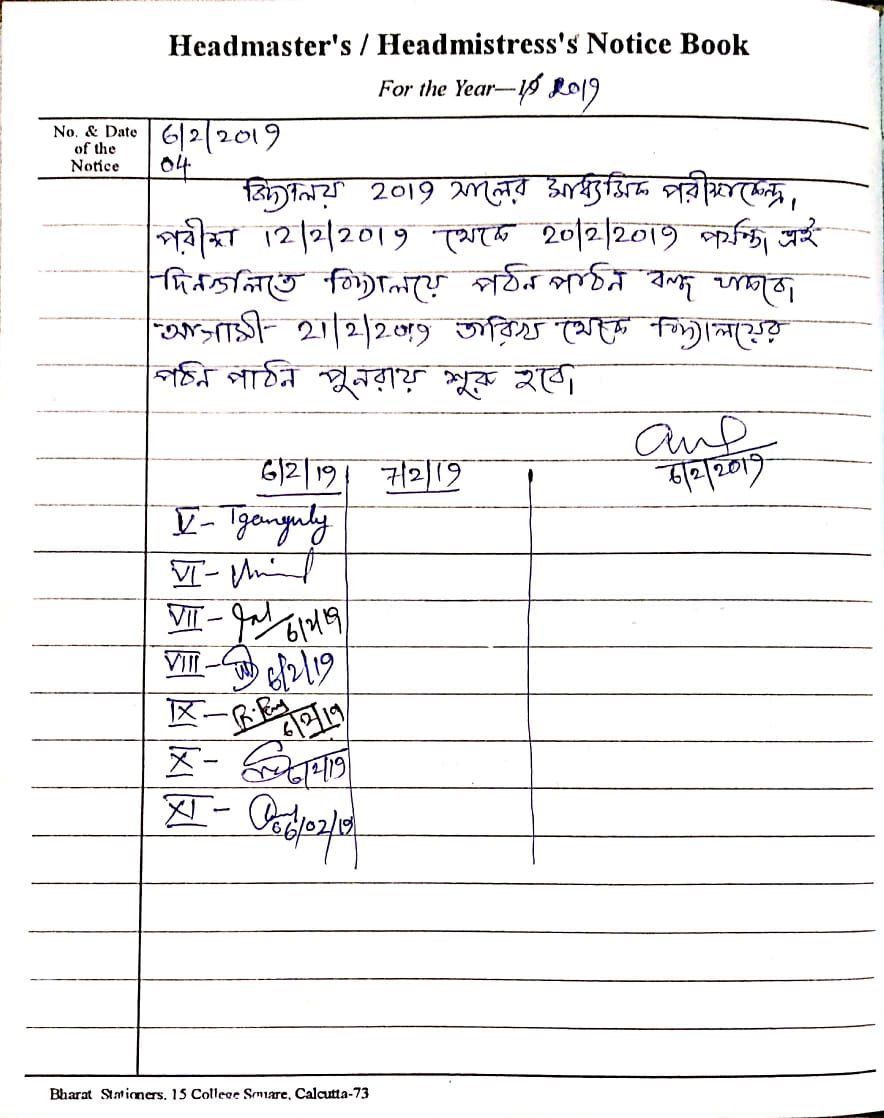 Headmaster's / Headmistress's Notice Book
For the Year—2019
No. & Date
of the
Notice
6/2/2019
04
বিদ্যালয় 2019 সালের মাধ্যমিক পরীক্ষাকেন্দ্র,
পরীক্ষা 12/2/2019 থেকে 20/2/2019 পর্যন্ত, এই
দিনগুলিতে বিদ্যালয়ে পঠন পাঠন বন্ধ থাকবে।
আগামী 21/2/2019 তারিখ থেকে বিদ্যালয়ের
পঠন পাঠন পুনরায় শুরু হবে।
6/2/2019
6/2/19 7/2/19
V - Tganguly
VI -
VII - 6/2/19
VIII - 6/2/19
IX - R. Roy 6/2/19
X - 6/2/19
XI - 06/02/19
Bharat Stationers. 15 College Square, Calcutta-73